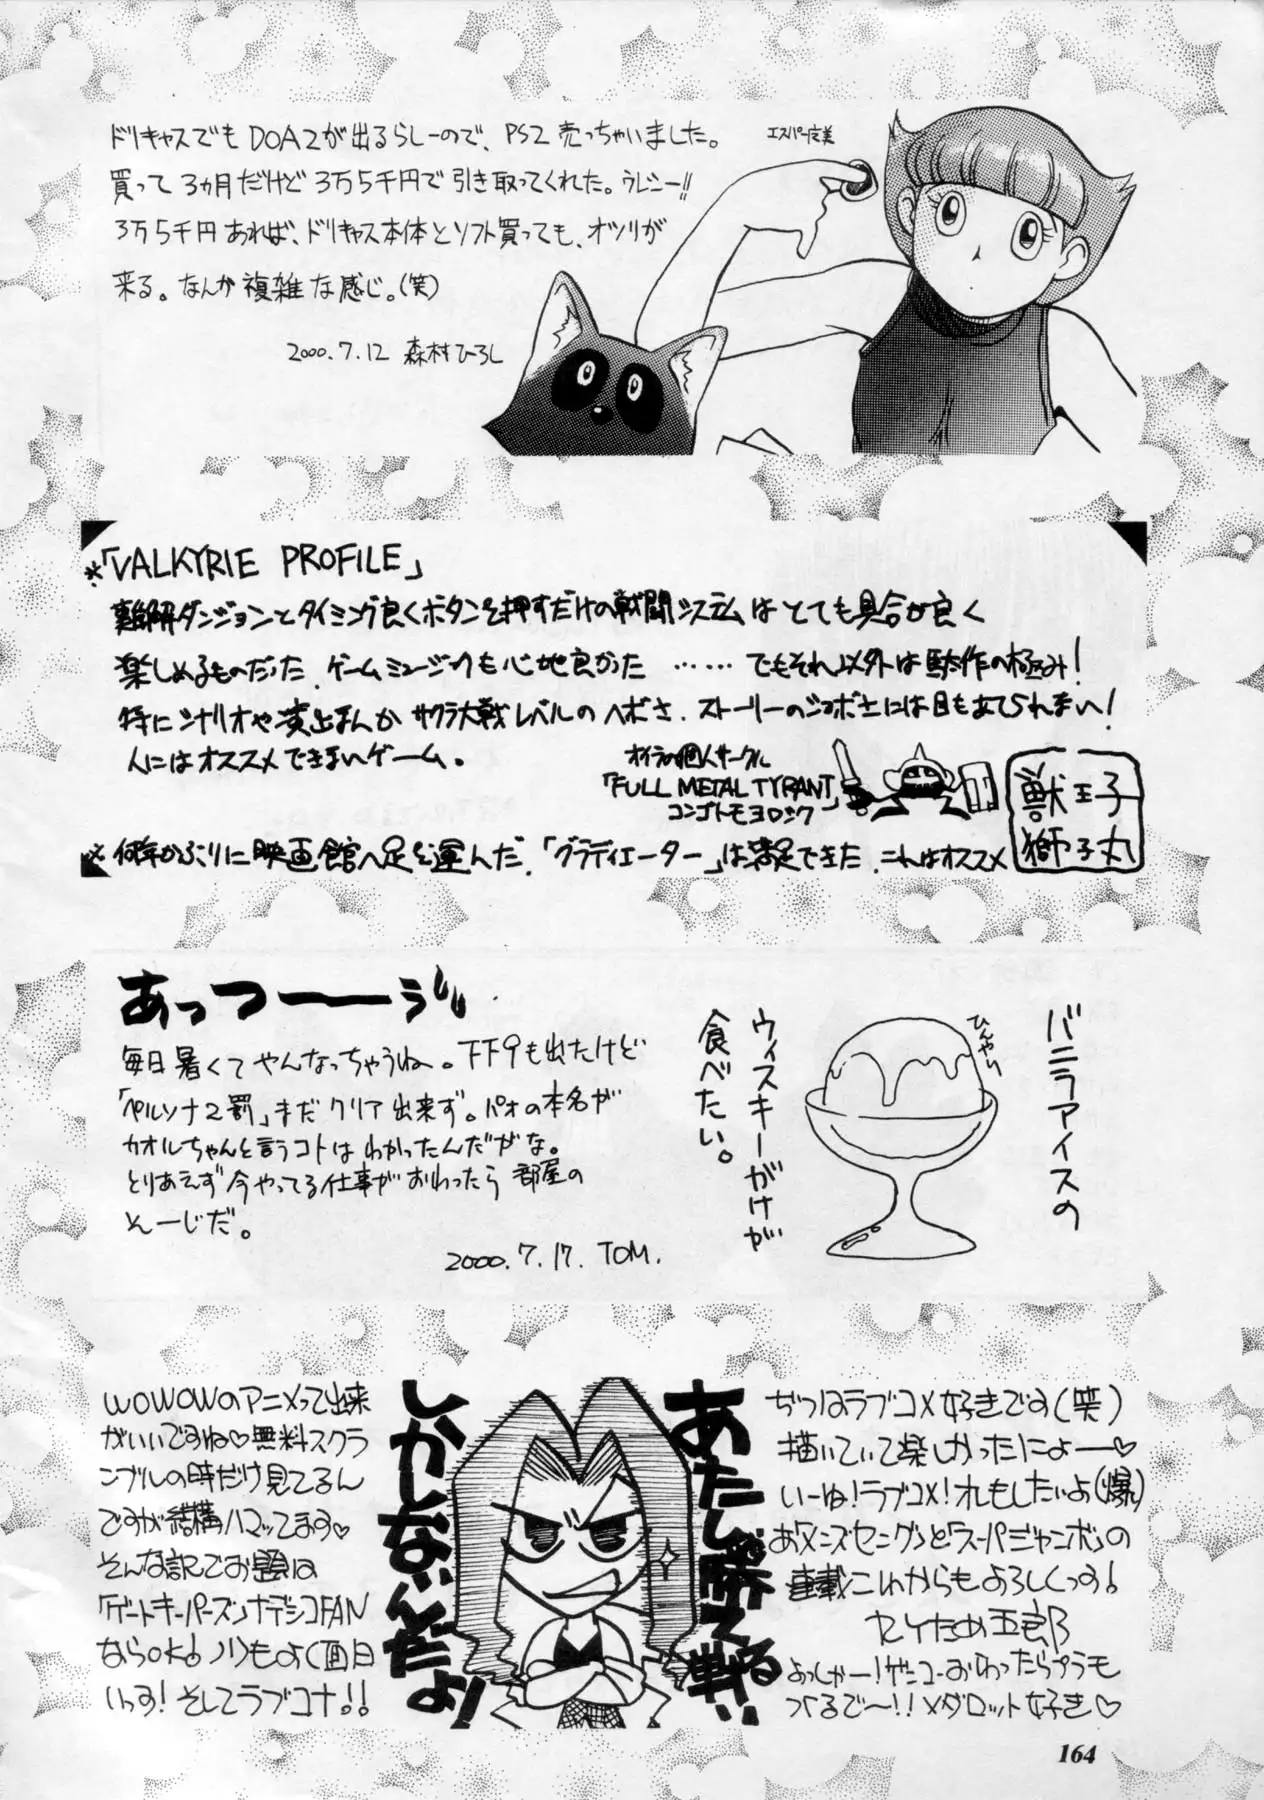 ドリキャスでもDOA2が出るらしーので、PS2売っちゃいました。
買って3ヵ月だけど3万5千円で引き取ってくれた。ウレシー!!
3万5千円あれば、ドリキャス本体とソフト買っても、オツリが
来る。なんか複雑な感じ。(笑)
2000.7.12 森村ひろし
エスパー定美
*「VALKYRIE PROFILE」
難解ダンジョンとタイミング良くボタンを押すだけの戦闘システムはとても具合が良く
楽しめるものだった。ゲームミュージックも心地良かった ……でもそれ以外は駄作の極み!
特にシナリオや演出なんかサクラ大戦レベルのヘボさ。ストーリーのショボさには目もあてられない!
人にはオススメできないゲーム。
オイラの個人サークル
「FULL METAL TYRANT」
コンゴトモヨロシク
獣王子
獅子丸
*何年かぶりに映画館へ足を運んだ。「グラディエーター」は満足できた。これはオススメ
あっつーーぅ
毎日暑くてやんなっちゃうね。FF9も出たけど
「ペルソナ2罰」まだクリア出来ず。パオの本名が
カオルちゃんと言うコトはわかったんだがな。
とりあえず今やってる仕事がおわったら部屋の
そーじだ。
2000.7.17. TOM.
バニラアイスの
ウィスキーがけが
食べたい。
ひんやり
WOWOWのアニメって出来
がいいですね♡無料スクラ
ンブルの時だけ見てるん
ですが結構ハマッてます♡
そんな訳でお題は
「ゲートキーパーズ」ナデシコFAN
ならOK! ノリもよく(面白
いっす! そしてラブコナ!!
あたし勝て戦る
しかしないんだよ!
ぢつはラブコメ好きです(笑)
描いていて楽しかったにょー♡
いーね!ラブコメ!オレもしたいよ(爆)
あ「メンズヤング」と「スーパージャンボ」の
連載これからもよろしくっす!
セイため五郎
よっしゃー!ゲンコーおわったらプラモ
つくるで〜!!メダロット好き♡
164